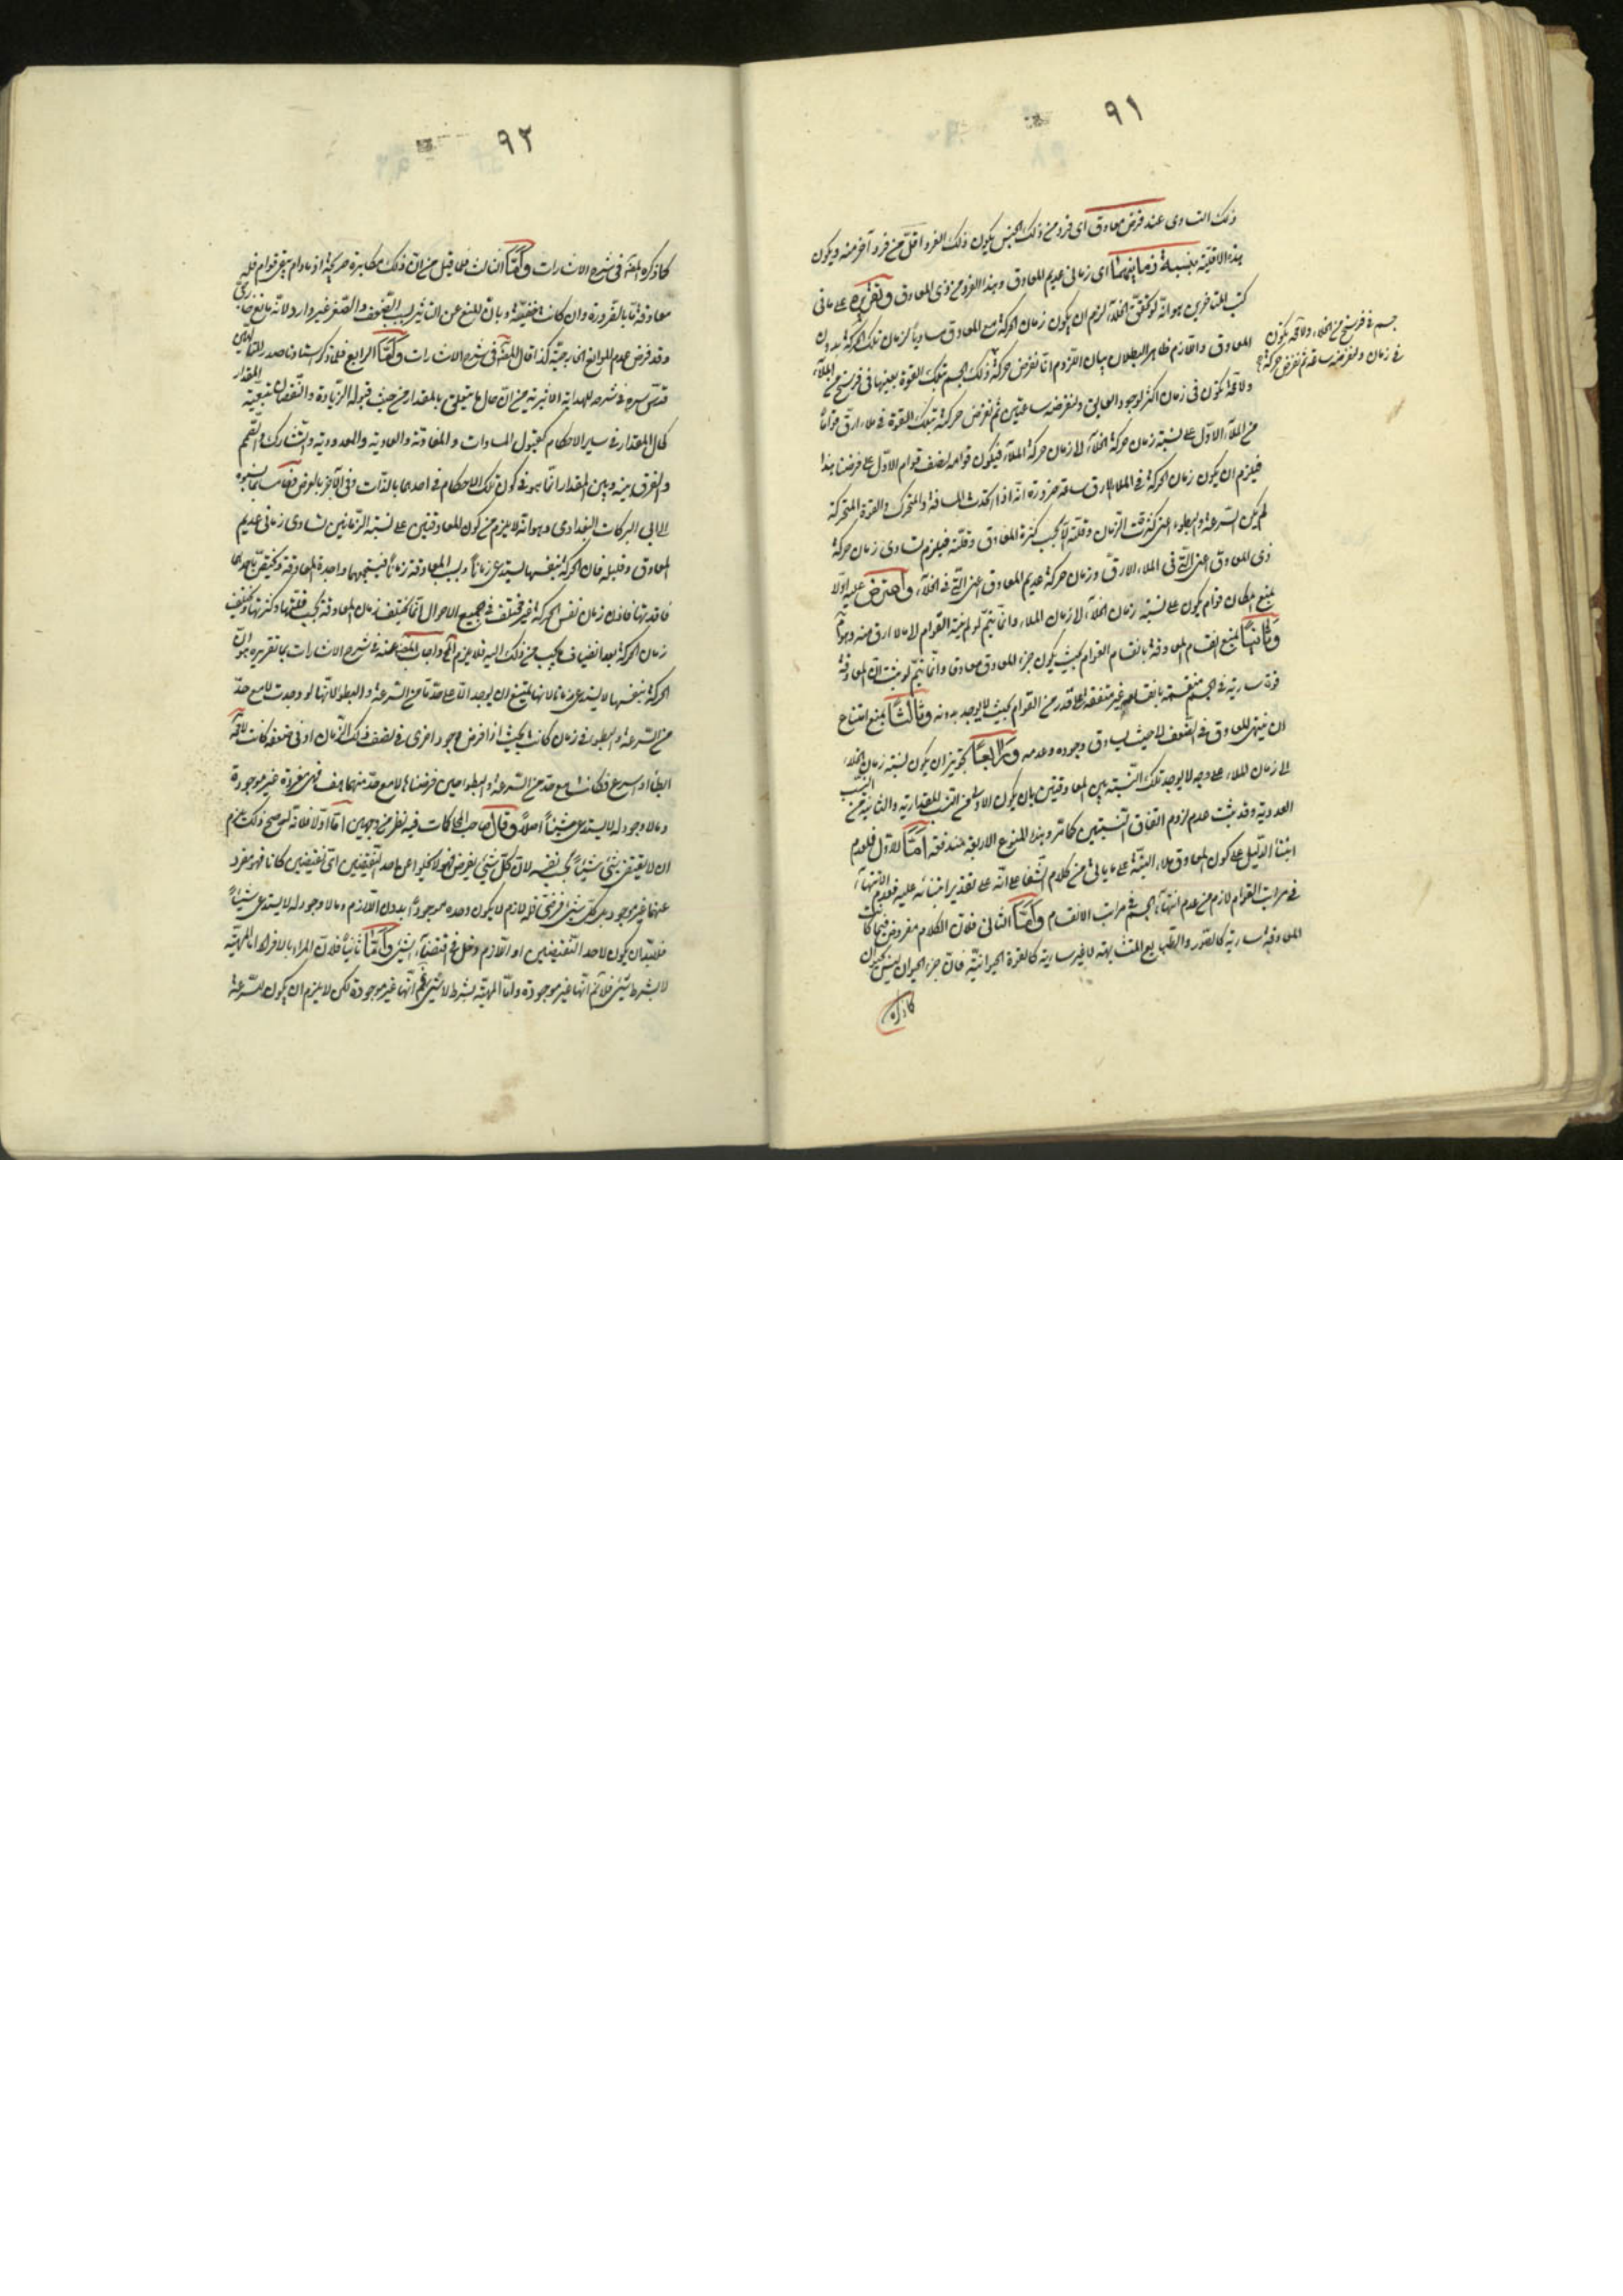 ٩١
ذلك التساوى عند فرض معاوق اى فرد من ذلك الجنس يكون ذلك الفرد اقلّ من فرد آخر منه ويكون
هذه الاقلية بنسبة زمانيهما اى زمانى عديم المعاوق وهذا الفرد من ذى المعاوق وتقريره على ما فى
كتب المتاخرين هو انه لو تحقق الخلاء لزم ان يكون زمان الحركة مع المعاوق مساويا لزمان تلك الحركة بدون
المعاوق واللازم ظاهر البطلان بيان اللزوم انا نفرض حركة ذلك الجسم بتلك القوة بعينها فى فرسخ من الملاء
جسم فى فرسخ من الخلاء ولا محة يكون
فى زمان ولنفرضه ساعة ثم نفرض حركة
ولا محة يكون فى زمان اكثر لوجود العايق ولنفرضه ساعتين ثم نفرض حركته بتلك القوة فى ملاء ارق قواما
من الملاء الاول على نسبة زمان حركة الخلاء الى زمان حركة الملاء فيكون قوامه نصف قوام الاول على فرضنا هذا
فيلزم ان يكون زمان الحركة فى الملاء الارق ساعة ضرورة انه اذا اتحدت المسافة والمتحرك والقوة المتحركة
لم يكن السرعة والبطوء اعنى كثرة الزمان وقلته الا بحسب كثرة المعاوق وقلته فيلزم تساوى زمان حركة
ذى المعاوق اعنى التى فى الملاء الارق وزمان حركة عديم المعاوق اعنى التى فى الخلاء واعترض عليه اولا
بمنع امكان قوام يكون على نسبة زمان الخلاء الى زمان الملاء وانما يتم لو لم ينته القوام الى ما لا ارق منه وهو مم
وثانيا بمنع انقسام المعاوقة بانقسام القوام بحيث يكون جزء المعاوق معاوقا وانما يتم لو ثبت ان المعاوقة
قوة سارية فى الجسم منقسمة بانقسامه غير متوقفة على قدر من القوام بحيث لا يوجد بدونه وثالثا بمنع امتناع
ان ينتهى المعاوق فى الضعف الى حيث يساوق وجوده وعدمه ورابعا بتجويز ان يكون نسبة زمان الخلاء
الى زمان الملاء على وجه لا يوجد تلك النسبة بين المعاوقتين بان يكون الاولى من النسب المقدارية والثانية من النسب
العددية وقد ثبت عدم لزوم اتفاق النسبتين كما مر وهذه المنوع الاربعة مندفعة اما الاول فلعدم
ابتناء الدليل على كون المعاوق ملاء البتة على ما ياتى من كلام الشفا على انه على تقدير ابتنائه عليه فعدم الانتهاء
فى مراتب القوام لازم من عدم انتهاء الجسم فى مراتب الانقسام واما الثانى فلان الكلام مفروض فيما كانت
المعاوقة سارية كالصور والطبايع المتشابهة لا غير سارية كالقوة الحيوانية فان جزء الحيوان ليس بحيوان
كما ذكره
٩٢
كما ذكره المصه فى شرح الاشارات واما الثالث فلما قيل من ان ذلك مكابرة صريحة اذ ما دام يبقى قوام فله
معاوقة ما بالضرورة وان كانت خفيفة وبان المنع عن التاثير بسبب الضعف والصغر غير وارد لانه مانع خارجى
وقد فرض عدم الموانع الخارجية كذا قال المصه فى شرح الاشارات واما الرابع فلما ذكر استادنا صدر المتالهين
قدس سره فى شرحه للهداية الاثيرية من ان حال ما يتعلق بالمقدار من حيث قبوله الزيادة والنقصان بتبعية المقدار
كحال المقدار فى ساير الاحكام كقبول المساوات والمفاوتة والعادية والمعدودية والتشارك والتصمم
والفرق بينه وبين المقدار انما هو فى كون تلك الاحكام فى احدهما بالذات وفى الآخر بالعرض فما نسبوه
الى ابى البركات البغدادى وهو انه لا يلزم من كون المعاوقتين على نسبة الزمانين تساوى زمانى عديم
المعاوق وقليله فان الحركة بنفسها يستدعى زمانا وبسبب المعاوقة زمانا فيستجمعهما واجدة المعاوقة ويختص باحدهما
فاقدتها فاذن زمان نفس الحركة غير مختلف فى جميع الاحوال انما يختلف زمان المعاوقة بحسب قلتها وكثرتها ويختلف
زمان الحركة بعد انضياف ما يجب من ذلك اليه فلا يلزم المح واجاب المصه عنه فى شرح الاشارات بما تقريره هو ان
الحركة بنفسها لا يستدعى زمانا لانها يمتنع ان يوجد الا على حد ما من السرعة والبطؤ لانها لو وجدت لا مع حد
من السرعة والبطوء فى زمان كانت بحيث اذا فرض وجود اخرى فى نصف ذلك الزمان او فى ضعفه كانت لا محة
ابطأ او اسرع فكانت مع حد من السرعة والبطؤ حين فرضناها لا مع حد منهما هف فهى مفردة غير موجودة
وما لا وجود له لا يستدعى شيئا اصلا وقال صاحب المحاكات فيه نظر من وجهين اما اولا فلانه لو صح ذلك لزم
ان لا يقتضى شئ شيئا بحسب نفسه لان كل شئ يفرض فهو لا يخلوا عن احد النقيضين اى نقيضين كانا فهو مفرد
عنهما غير موجود بل كل شئ فرض فله لازم لا يكون وحده موجودا بدون اللازم وما لا وجود له لا يستدعى شيئا
فلابد ان يكون لاحد النقيضين او اللازم دخل فى اقتضاء الشئ واما ثانيا فلان المراد بالافراد اما المهية
لا بشرط شئ فلا نم انها غير موجودة واما المهية بشرط لا شئ نعم انها غير موجودة لكن لا يلزم ان يكون للسرعة